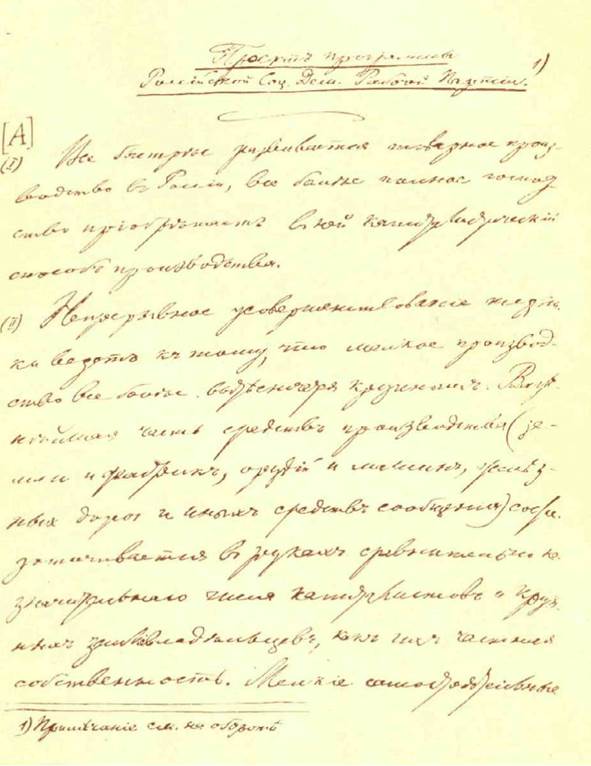 Проектъ программы
Россійской Соц. Дем. Рабочей Партіи. 1)
[A]
(I) Все быстрѣе развивается товарное произ-
водство въ Россіи, все болѣе полное господ
ство пріобрѣтаетъ въ ней капиталистическій
способъ производства.
(II) Непрерывное усовершенствованіе техни-
ки ведетъ къ тому, что мелкое производ-
ство все болѣе вытѣсняется крупнымъ. Важ-
нѣйшая часть средствъ производства (зе-
мли и фабрикъ, орудій и машинъ, желѣз-
ныхъ дорогъ и иныхъ средствъ сообщенія) сосре-
доточивается въ рукахъ сравнительно не-
значительнаго числа капиталистовъ и круп-
ныхъ землевладѣльцевъ, какъ ихъ частная
собственность. Мелкіе самостоятельные
1) Примѣчаніе см. на оборотѣ